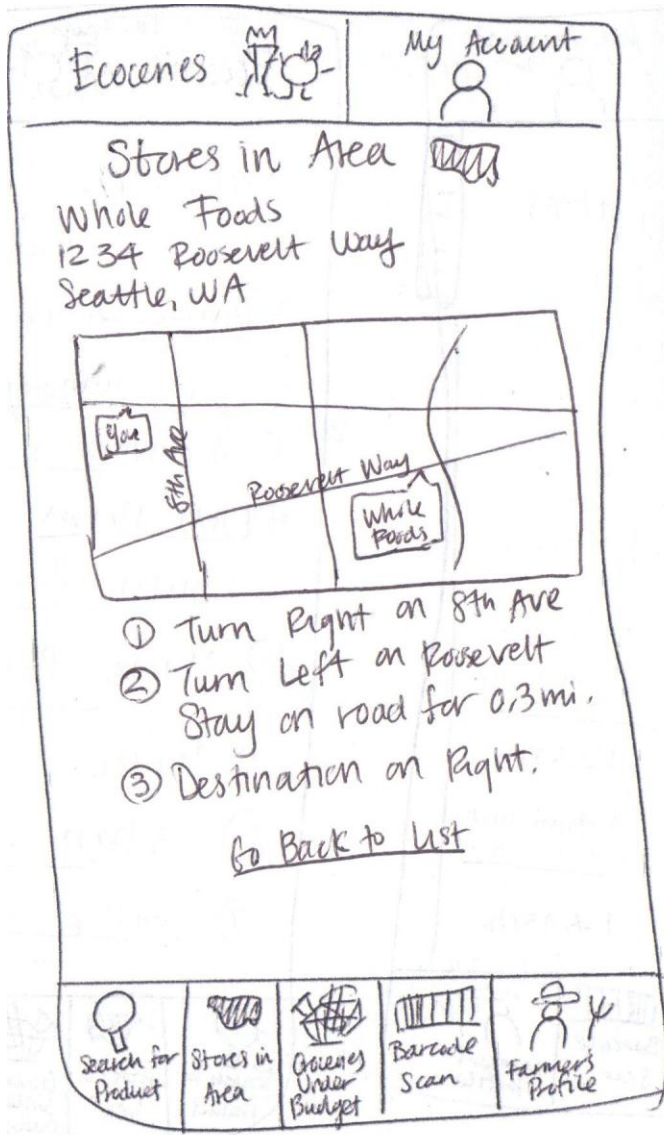 Ecoceries
My Account
Stores in Area
Whole Foods
1234 Roosevelt Way
Seattle, WA
You
8th Ave
Roosevelt Way
Whole
Foods
① Turn Right on 8th Ave
② Turn Left on Roosevelt
Stay on road for 0.3 mi.
③ Destination on Right.
Go Back to List
Search for
Product
Stores in
Area
Groceries
Under
Budget
Barcode
Scan
Farmer's
Profile